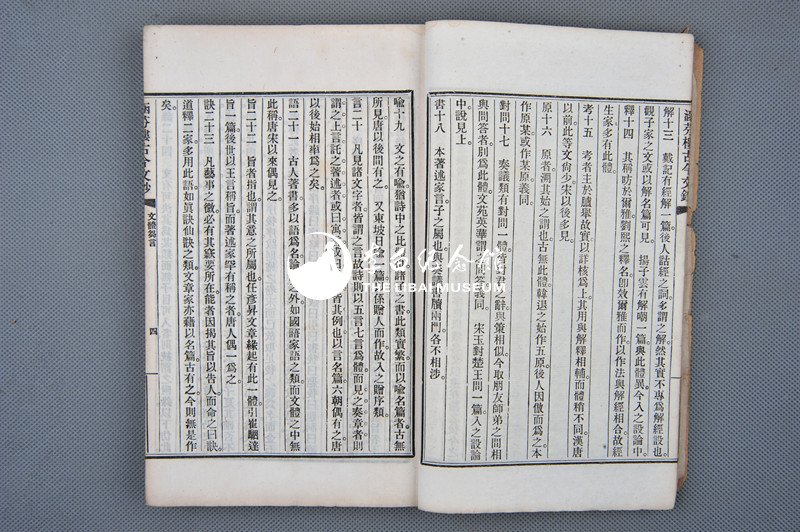 解十三 戴記有經解一篇後人詁經之詞多謂之解然其實不專爲解經設也
觀子家之文或以解名篇可見 揚子雲有解嘲一篇與此體異今入之設論中
釋十四 其稱昉於爾雅劉熙之釋名卽效爾雅而作以作法與解經相合故經
生家多有此體
考十五 考者主於臚舉故實以詳核爲上其用與解釋相輔而體稍不同漢唐
以前此等文尙少宋以後多見
原十六 原者溯其始之謂也古無此體韓退之始作五原後人因倣而爲之本
作原某或作某原義同
對問十七 奏議類有對問一體皆對君之辭與策相似今取朋友師弟之間相
與問答者別爲此體文苑英華謂之問答義同 宋玉對楚王問一篇入之設論
中說見上
書十八 本著述家言子之屬也與奏議書牘兩門各不相涉
喩十九 文之有喩猶詩中之比也諸子之書此類實繁而以喩名篇者古無
所見唐以後間有之 又東坡日喩一篇係贈人而作故入之贈序類
言二十 凡見諸文字者皆謂之言故詩則以五言七言爲體而見之奏章者則
謂之上言託之著述者或曰寓言皆其例也以言名篇六朝偶有之唐
以後始相率爲之矣
語二十一 古人著書多以語爲名論語之外如國語家語之類而文體之中無
此稱唐宋以來偶見之
旨二十二 旨者指也謂其意之所屬也任彥昇文章緣起有此一體引崔駰達
旨一篇後世以王言稱旨而著述家罕有稱之者唐人偶一爲之
訣二十三 凡藝事之微必有其竅要所在能者因揭其旨以告人而命之曰訣
道釋二家多用此語如眞訣仙訣之類文章家亦藉以名篇古有之今則無是作
矣
涵芬樓古今文鈔
文體芻言
四
李白紀念館
THE LIBAI MUSEUM